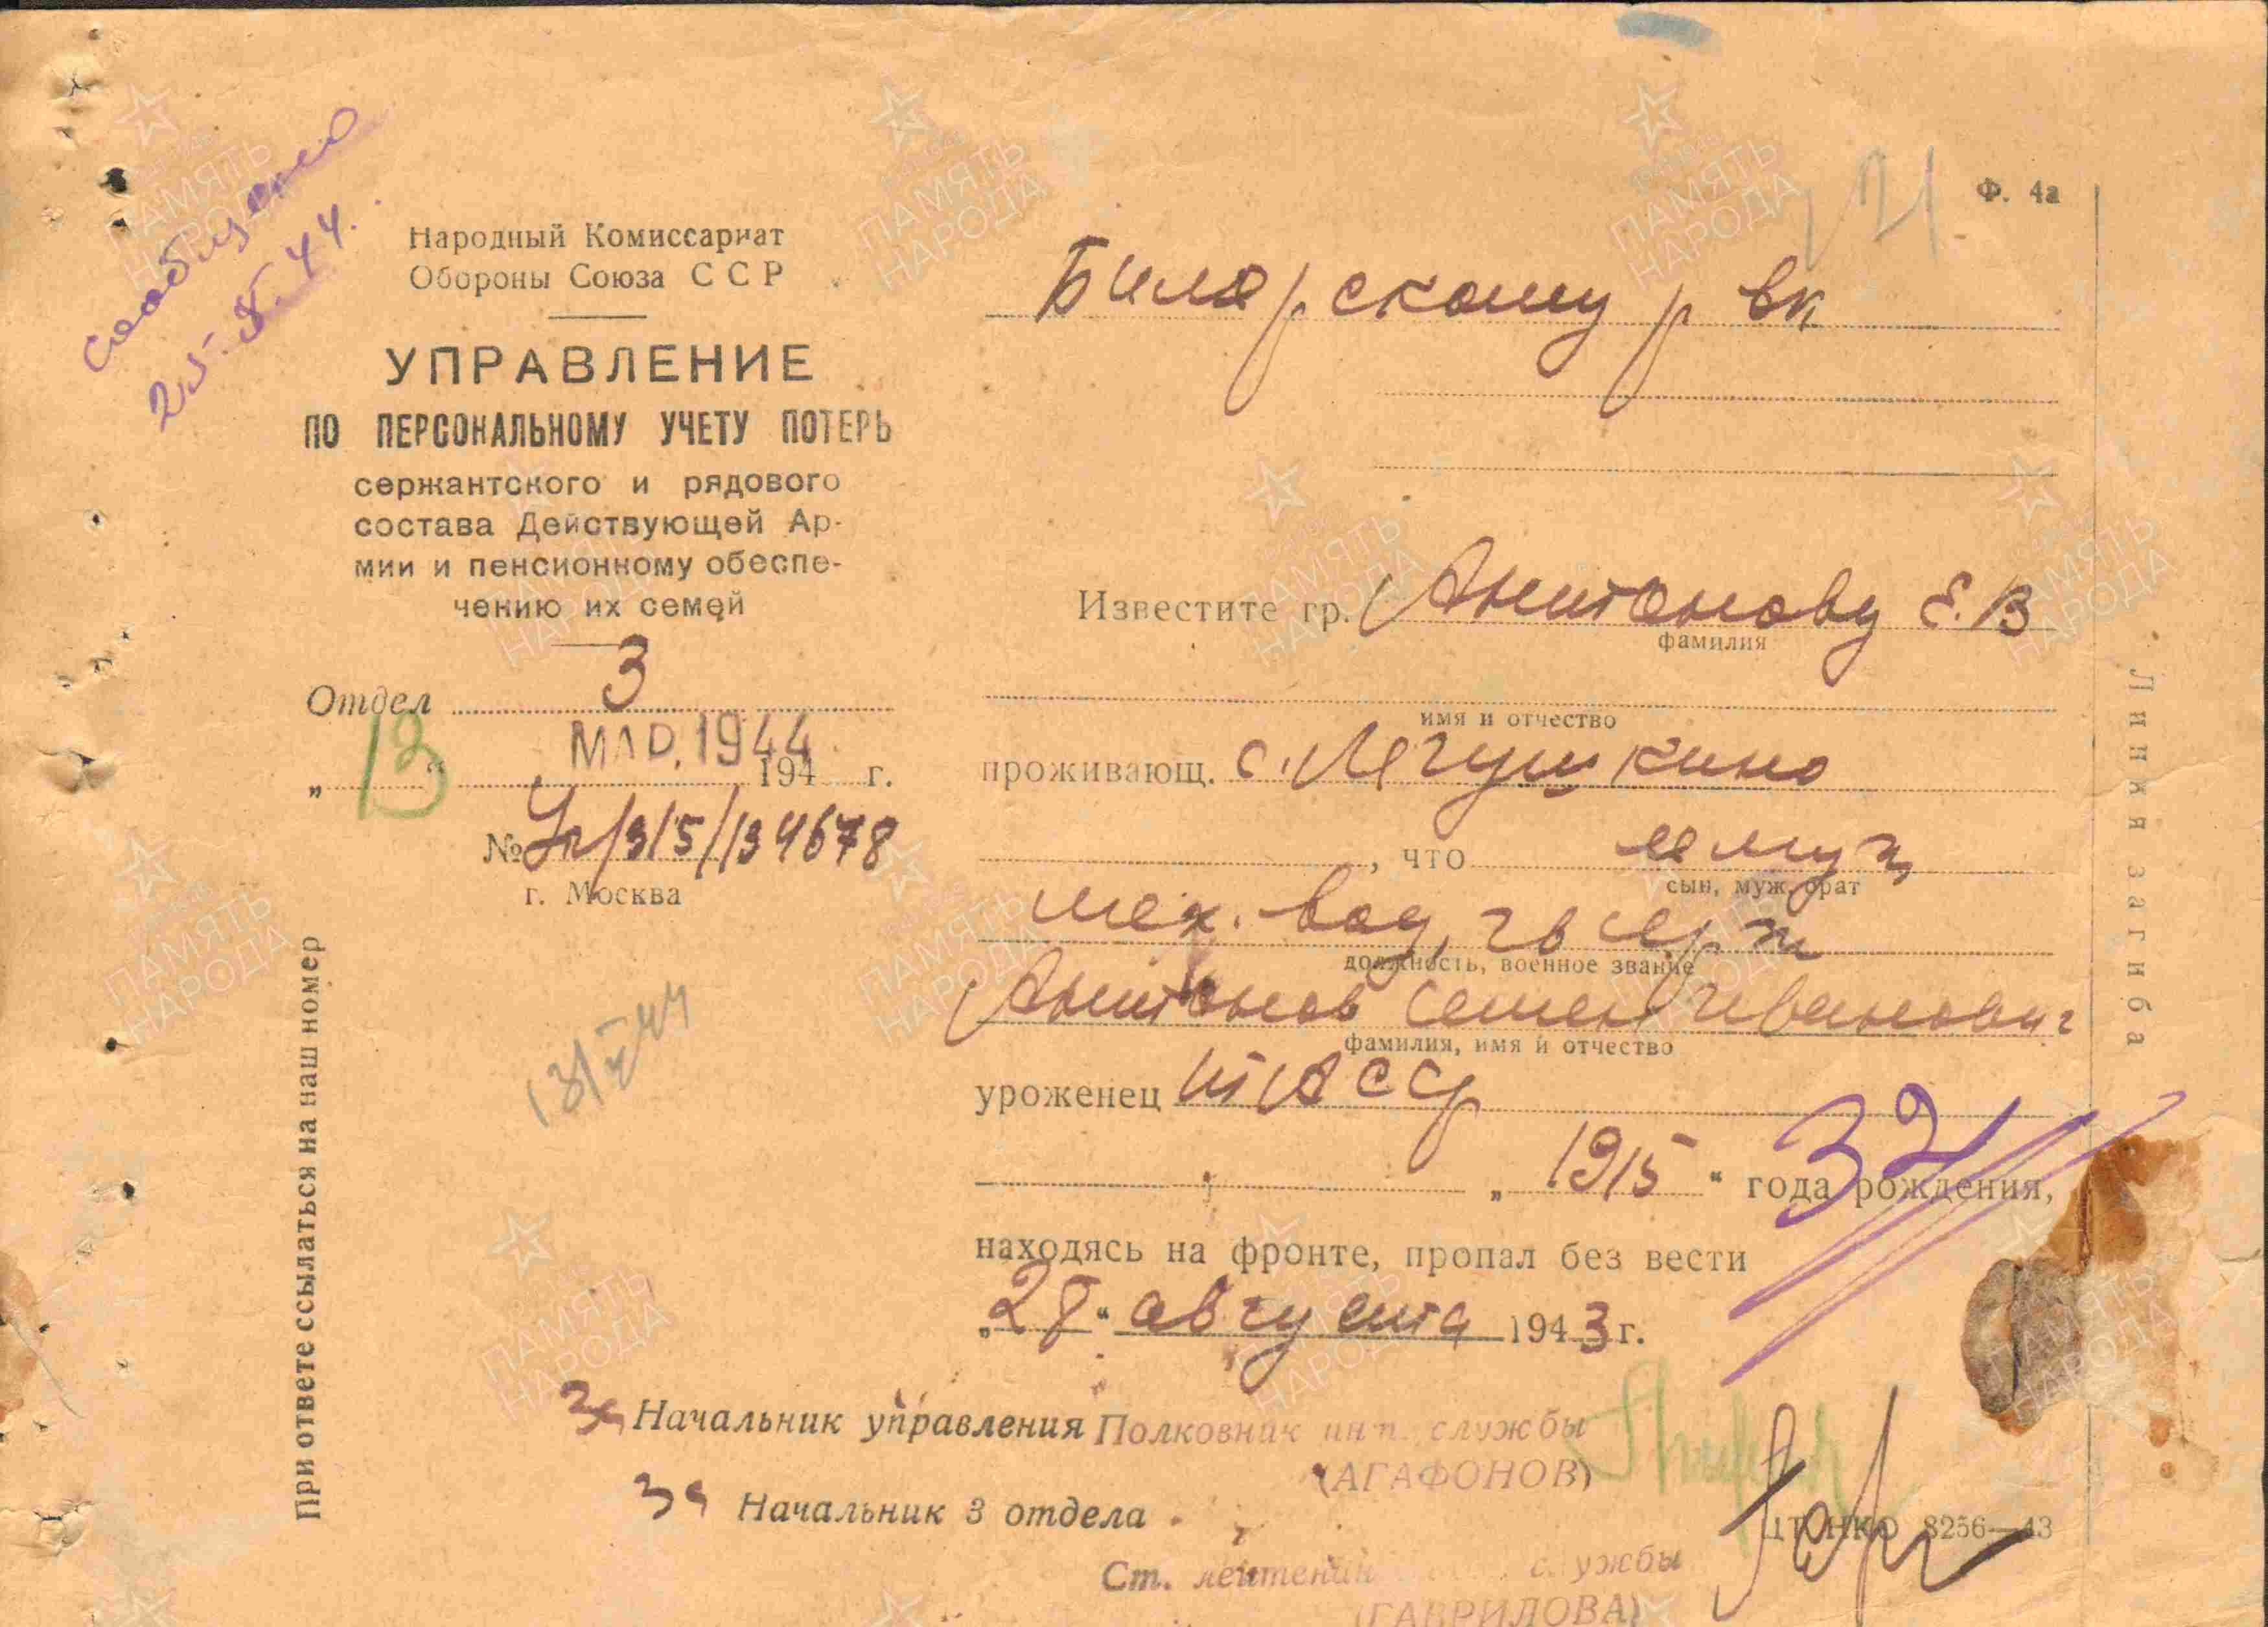 Сообщено
25.8.44.
Народный Комиссариат
Обороны Союза ССР
УПРАВЛЕНИЕ
ПО ПЕРСОНАЛЬНОМУ УЧЕТУ ПОТЕРЬ
сержантского и рядового
состава Действующей Ар-
мии и пенсионному обеспе-
чению их семей
Отдел 3
„13“ МАР. 1944 194 г.
№ Уп/3/5/134678
г. Москва
При ответе ссылаться на наш номер
Ф. 4а
Билярскому рвк
Известите гр. Антонову Е.В
фамилия
имя и отчество
проживающ. с. Лягушкино
, что ее муж
сын, муж, брат
мех. вод, гв серж
должность, военное звание
Антонов Семен Иванович
фамилия, имя и отчество
уроженец ТАССР
„1915“ года рождения,
32
находясь на фронте, пропал без вести
„28“ августа 1943 г.
За Начальник управления Полковник инт. службы
(АГАФОНОВ)
За Начальник 3 отдела
ЦТ НКО 8256—43
Ст. лейтенант службы
(ГАВРИЛОВА)
Линия загиба
ПАМЯТЬ
НАРОДА